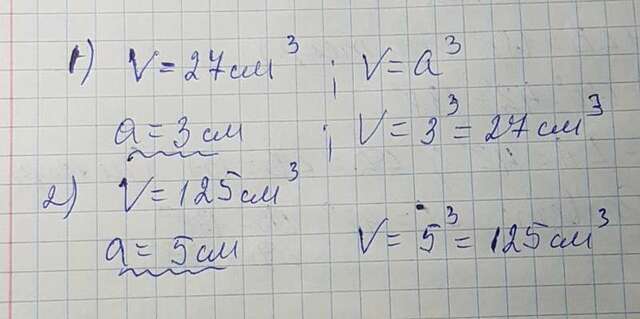 1) V = 27 см³ ; V = a³
a = 3 см ; V = 3³ = 27 см³
2) V = 125 см³
a = 5 см V = 5³ = 125 см³